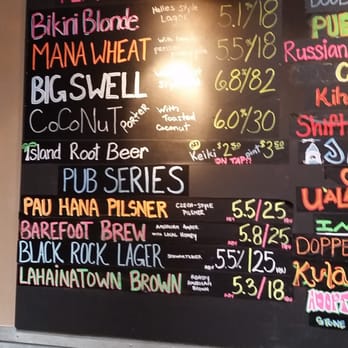 Bikini Blonde Helles Style Lager 5.1%/18
MANA WHEAT 5.5%/18
BIG SWELL 6.8%/82
COCONUT PORTER With Toasted Coconut 6.0%/30
Island Root Beer Keiki $2.50 pint $3.50
ON TAP!!
PUB SERIES
PAU HANA PILSNER CZECH-STYLE PILSNER 5.5/25
BAREFOOT BREW AMERICAN AMBER WITH LOCAL HONEY 5.8/25
BLACK ROCK LAGER SCHWARZBIER 5.5%/25
LAHAINATOWN BROWN ROASTY AMERICAN BROWN 5.3/18
PUB
Russian
Shift
DOPPE
Kula